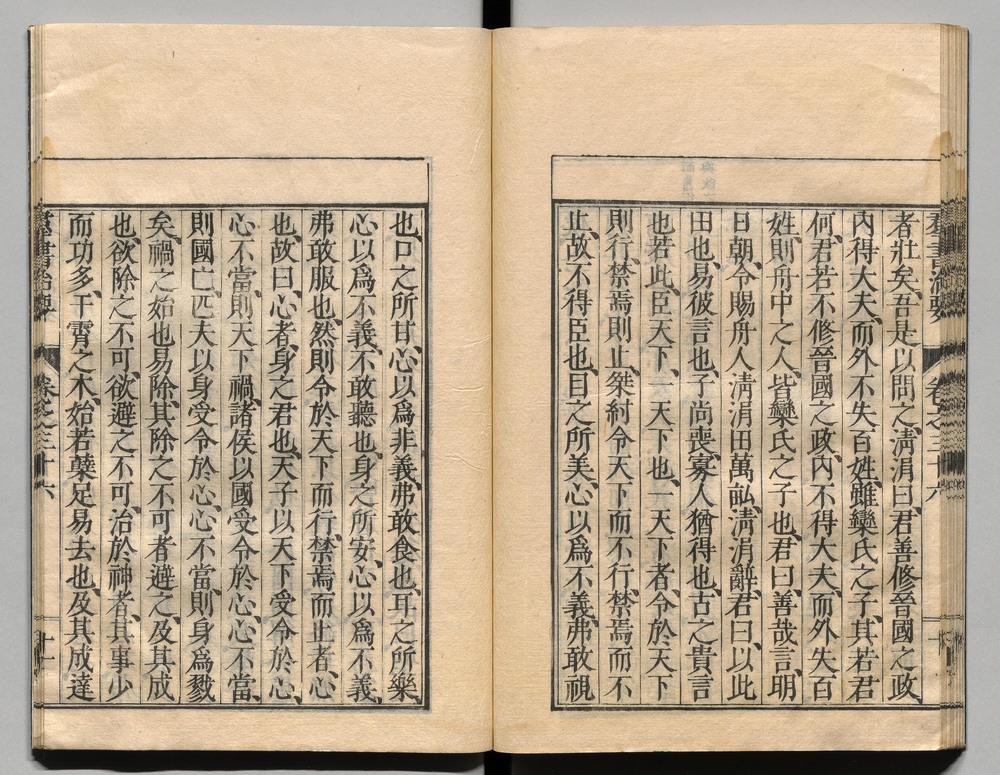 羣書治要 卷之三十六 十
者壯矣、吾是以問之、淸涓曰、君善修晉國之政、
內得大夫、而外不失百姓、雖欒氏之子、其若君
何、君若不修晉國之政、內不得大夫、而外失百
姓、則舟中之人、皆欒氏之子也、君曰、善哉言、明
日朝、令賜舟人淸涓田萬畝、淸涓辭、君曰、以此
田也、易彼言也、子尚喪、寡人猶得也、古之貴言
也若此、臣天下、一天下也、一天下者、令於天下
則行、禁焉則止、桀紂令天下而不行、禁焉而不
止、故不得臣也、目之所美、心以爲不義、弗敢視
也、口之所甘、心以爲非義、弗敢食也、耳之所樂、
心以爲不義、不敢聽也、身之所安、心以爲不義、
弗敢服也、然則令於天下而行、禁焉而止者、心
也、故曰、心者、身之君也、天子以天下受令於心、
心不當、則天下禍、諸侯以國受令於心、心不當、
則國亡、匹夫以身受令於心、心不當、則身爲戮
矣、禍之始也易除、其除之不可者避之、及其成
也、欲除之不可、欲避之不可、治於神者、其事少
而功多、干霄之木、始若蘖足易去也、及其成達
羣書治要 卷之三十六 十一